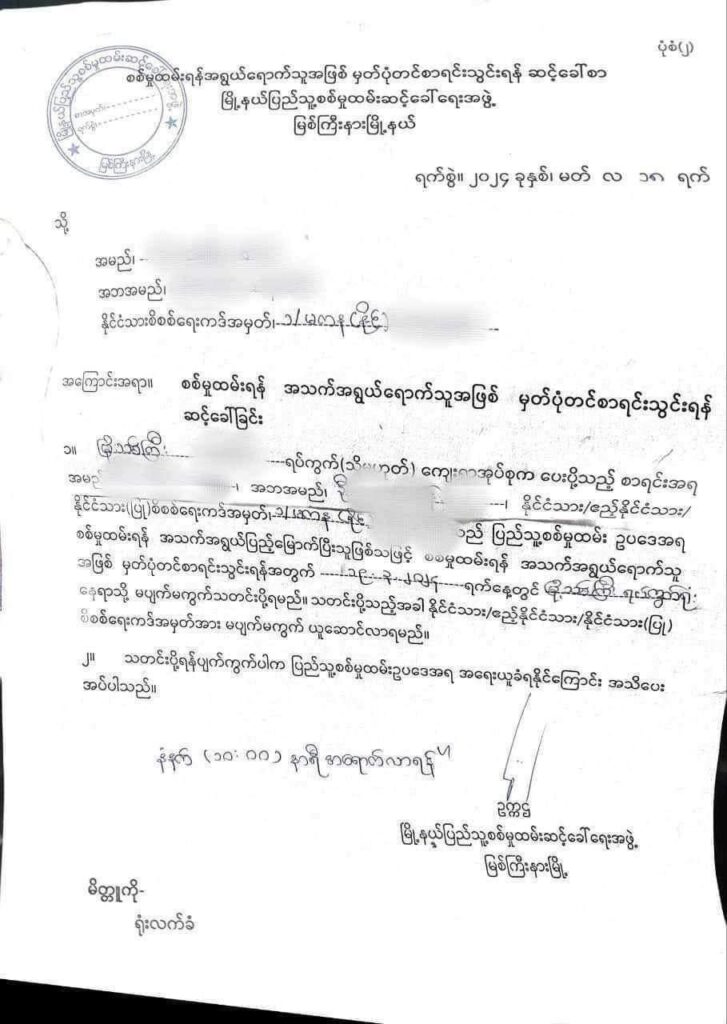 ပုံစံ(၂)
စစ်မှုထမ်းရန်အရွယ်ရောက်သူအဖြစ် မှတ်ပုံတင်စာရင်းသွင်းရန် ဆင့်ခေါ်စာ
မြို့နယ်ပြည်သူ့စစ်မှုထမ်းဆင့်ခေါ်ရေးအဖွဲ့
မြစ်ကြီးနားမြို့နယ်
မြို့နယ်ပြည်သူ့စစ်မှုထမ်းဆင့်ခေါ်ရေးအဖွဲ့
မြစ်ကြီးနားမြို့
ရက်စွဲ။ ၂၀၂၄ ခုနှစ်၊ မတ် လ ၁၈ ရက်
သို့
အမည်၊
အဘအမည်၊
နိုင်ငံသားစိစစ်ရေးကဒ်အမှတ်၊ ၁/မကန(နိုင်)
အကြောင်းအရာ။ စစ်မှုထမ်းရန် အသက်အရွယ်ရောက်သူအဖြစ် မှတ်ပုံတင်စာရင်းသွင်းရန်
ဆင့်ခေါ်ခြင်း
၁။ ရပ်ကွက်(သို့မဟုတ်) ကျေးရွာအုပ်စုက ပေးပို့သည့် စာရင်းအရ
အမည် ၊ အဘအမည်၊ ၊ နိုင်ငံသား/ဧည့်နိုင်ငံသား/
နိုင်ငံသား(ပြု)စိစစ်ရေးကဒ်အမှတ်၊ ၁/မကန(နိုင်) သည် ပြည်သူ့စစ်မှုထမ်း ဥပဒေအရ
စစ်မှုထမ်းရန် အသက်အရွယ်ပြည့်မြောက်ပြီးသူဖြစ်သဖြင့် စစ်မှုထမ်းရန် အသက်အရွယ်ရောက်သူ
အဖြစ် မှတ်ပုံတင်စာရင်းသွင်းရန်အတွက် ၁၉-၃-၂၀၂၄ ရက်နေ့တွင် ရပ်ကွက်ရုံး
နေရာသို့ မပျက်မကွက်သတင်းပို့ရမည်။ သတင်းပို့သည့်အခါ နိုင်ငံသား/ဧည့်နိုင်ငံသား/နိုင်ငံသား(ပြု)
စိစစ်ရေးကဒ်အမှတ်အား မပျက်မကွက် ယူဆောင်လာရမည်။
၂။ သတင်းပို့ရန်ပျက်ကွက်ပါက ပြည်သူ့စစ်မှုထမ်းဥပဒေအရ အရေးယူခံရနိုင်ကြောင်း အသိပေး
အပ်ပါသည်။
နံနက် (၁၀:၀၀) နာရီ အရောက်လာရန်
ဥက္ကဋ္ဌ
မြို့နယ်ပြည်သူ့စစ်မှုထမ်းဆင့်ခေါ်ရေးအဖွဲ့
မြစ်ကြီးနားမြို့
မိတ္တူကို-
ရုံးလက်ခံ